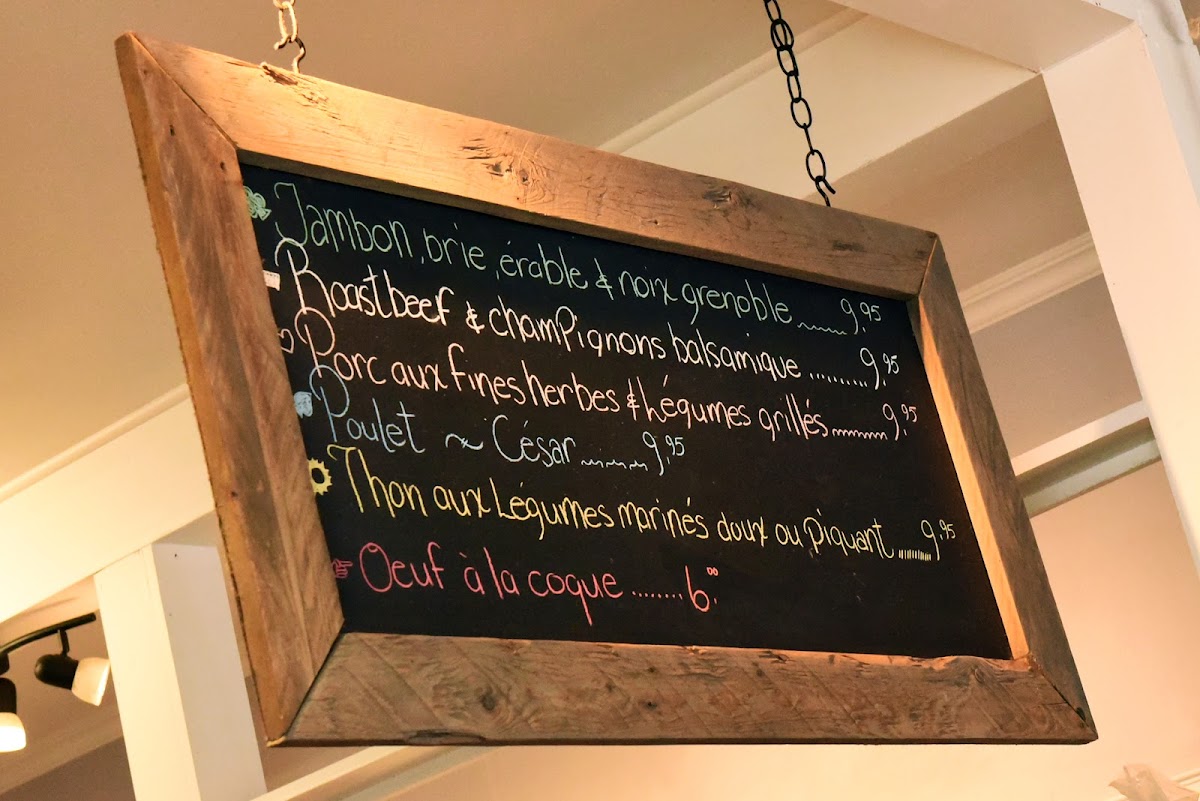 Jambon, brie, érable & noix grenoble 9.95
Roastbeef & champignons balsamique .......... 9.95
Porc aux fines herbes & Légumes grillés 9.95
Poulet ~ César 9.95
Thon aux Légumes marinés doux ou piquant 9.95
Oeuf à la coque ........ 6.00